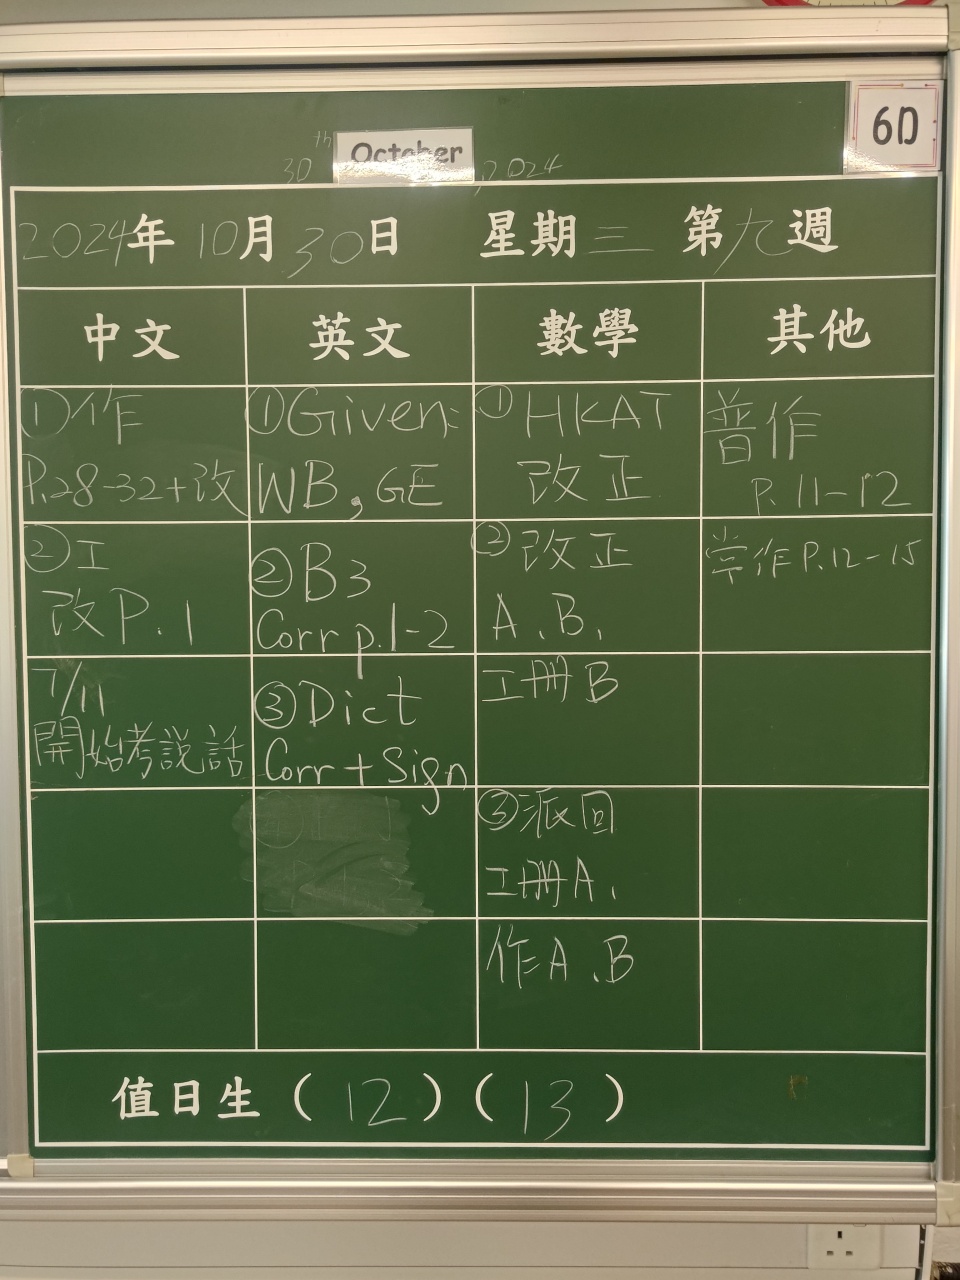 6D
30th October, 2024
2024年 10月 30日 星期三 第九週
中文 英文 數學 其他
①作
P.28-32+改
②工
改P.1
7/11
開始考說話
①Given:
WB, GE
②B3
Corr p.1-2
③Dict
Corr + Sign
①HKAT
改正
②改正
A、B、
工冊B
③派回
工冊A、
作A、B
普作
P.11-12
常作P.12-15
值日生（12）（13）